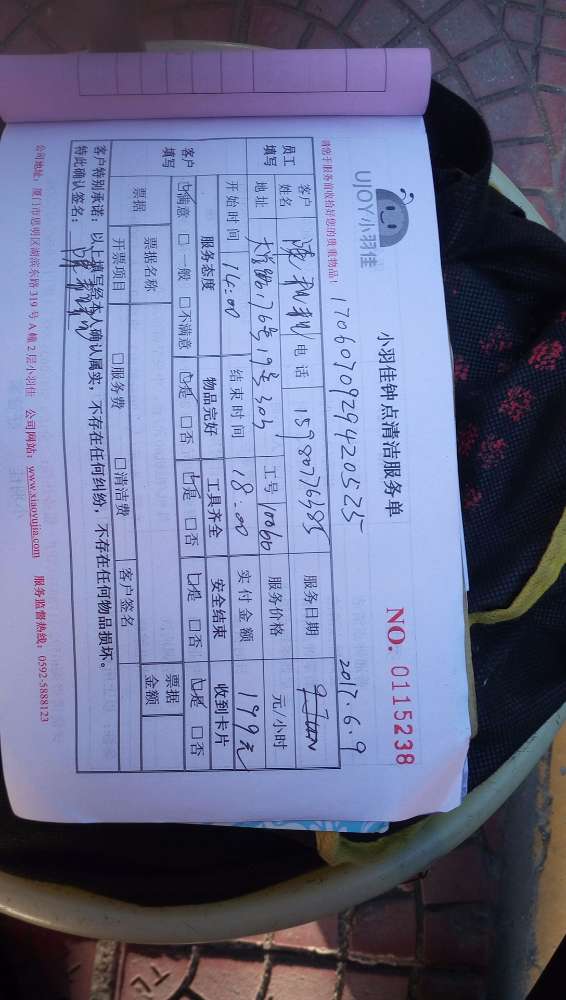 UJOY小羽佳
小羽佳钟点清洁服务单
NO. 0115238
请您于服务前收拾好您的贵重物品!
1706070929420525
2017.6.9
员工填写
客户姓名
电话
服务日期
地址
76号19号303
工号
10066
服务价格
元/小时
开始时间
14:00
结束时间
18:00
实付金额
199元
客户填写
服务态度
物品完好
工具齐全
安全结束
收到卡片
☑满意 □一般 □不满意
☑是 □否
☑是 □否
☑是 □否
☑是 □否
票据
票据名称
票据金额
开票项目
□服务费
□清洁费
客户签名
客户特别承诺:以上填写经本人确认属实,不存在任何纠纷,不存在任何物品损坏。
特此确认签名:
公司地址:厦门市思明区湖滨东路319号A幢2层小羽佳 公司网站:www.xiaoyujia.com 服务监督热线:0592-5888123